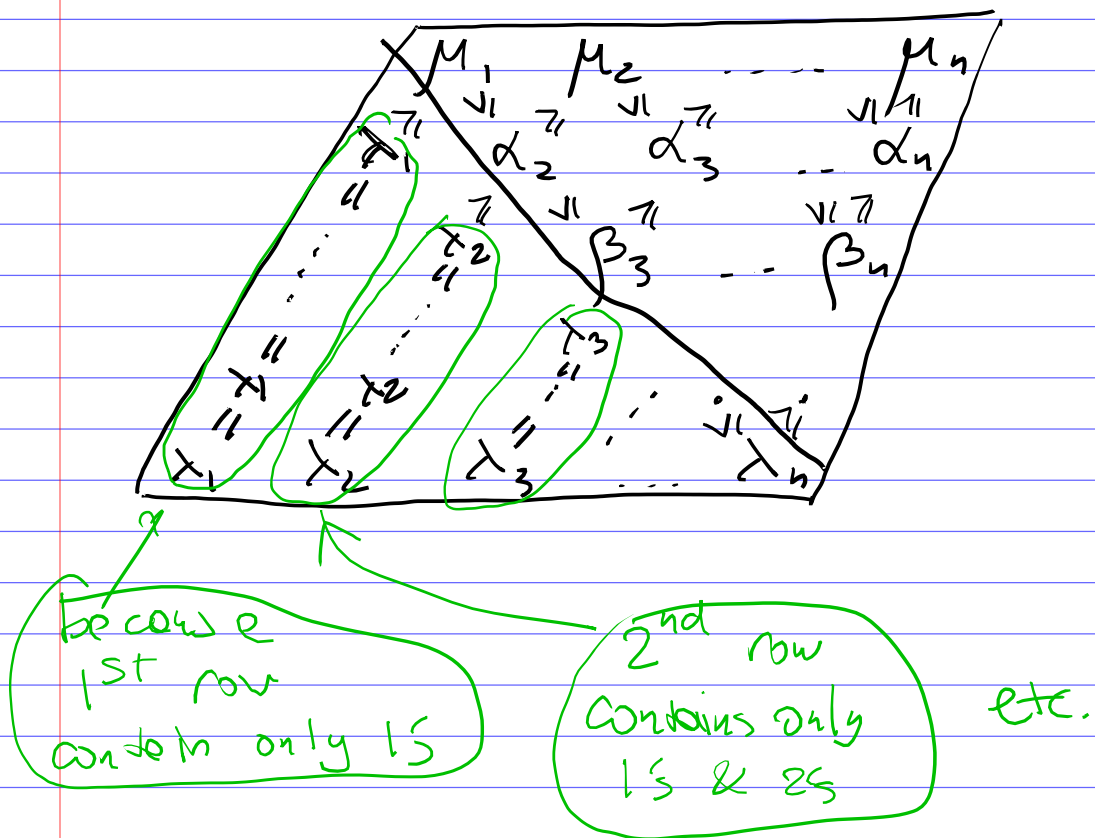 μ₁ μ₂ ----- μₙ
≤ ≥ ≤ ≥ ≤ ≥
λ₁ α₂ α₃ -- αₙ
= ≥ ≤ ≥ ≤ ≥
λ₂ β₃ --- βₙ
=
λ₃
= =
λ₁ λ₂ ≤ ≥
= = =
λ₁ λ₂ λ₃ ---- λₙ
because
1st row
contain only 1s
2nd row
contains only
1's & 2s
etc.